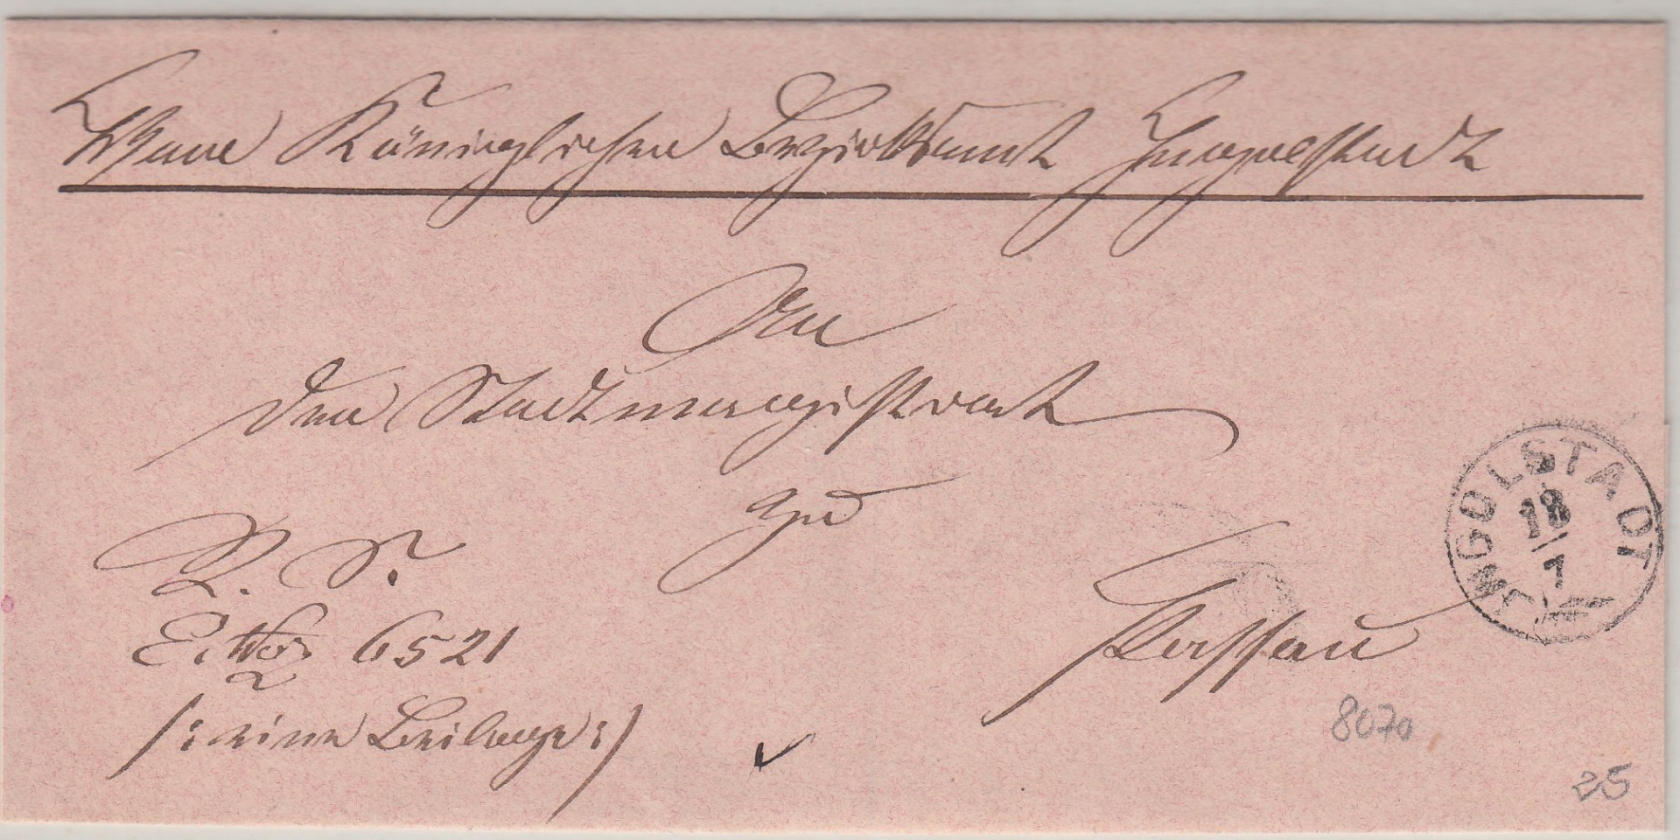 Vom Königlichen Bezirksamt Ingolstadt
An
den Stadtmagistrat
zu
Passau
R. S.
E. No 6521
/: eine Beilage :/
INGOLSTADT
18
7
8070
25